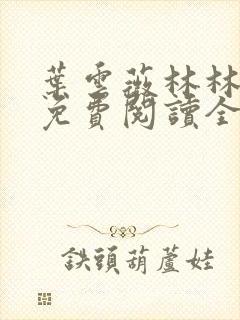 葉雲薇林林
免費閱讀全
鉄頭葫蘆娃